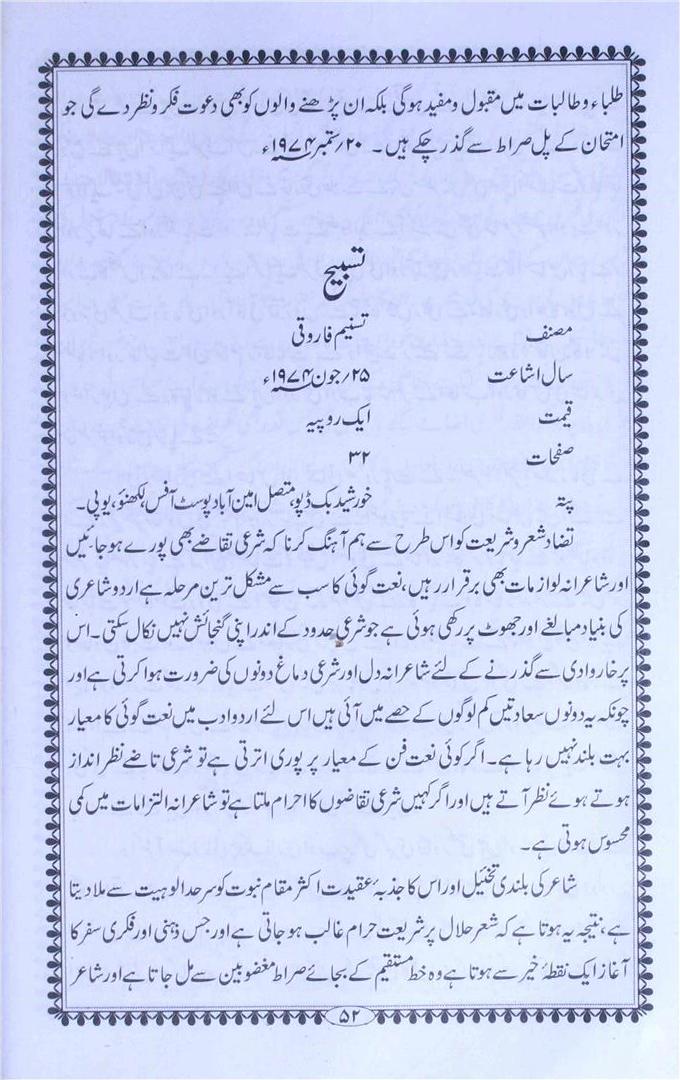 طلباء و طالبات میں مقبول و مفید ہوگی بلکہ ان پڑھنے والوں کو بھی دعوت فکر و نظر دے گی جو
امتحان کے پل صراط سے گذر چکے ہیں۔ ۲۰؍ستمبر ۱۹۷۴ء
تسبیح
مصنف تسنیم فاروقی
سال اشاعت ۲۵؍جون ۱۹۷۴ء
قیمت ایک روپیہ
صفحات ۳۲
پتہ خورشید بک ڈپو، متصل امین آباد پوسٹ آفس، لکھنؤ، یوپی۔
تضاد شعر و شریعت کو اس طرح سے ہم آہنگ کرنا کہ شرعی تقاضے بھی پورے ہو جائیں
اور شاعرانہ لوازمات بھی برقرار رہیں، نعت گوئی کا سب سے مشکل ترین مرحلہ ہے اردو شاعری
کی بنیاد مبالغے اور جھوٹ پر رکھی ہوئی ہے جو شرعی حدود کے اندر اپنی گنجائش نہیں نکال سکتی۔ اس
پر خار وادی سے گذرنے کے لئے شاعرانہ دل اور شرعی دماغ دونوں کی ضرورت ہوا کرتی ہے اور
چونکہ یہ دونوں سعادتیں کم لوگوں کے حصے میں آئی ہیں اس لئے اردو ادب میں نعت گوئی کا معیار
بہت بلند نہیں رہا ہے۔ اگر کوئی نعت فن کے معیار پر پوری اترتی ہے تو شرعی تاضے نظر انداز
ہوتے ہوئے نظر آتے ہیں اور اگر کہیں شرعی تقاضوں کا احرام ملتا ہے تو شاعرانہ التزامات میں کمی
محسوس ہوتی ہے۔
شاعر کی بلندی تخئیل اور اس کا جذبۂ عقیدت اکثر مقام نبوت کو سرحد الوہیت سے ملا دیتا
ہے، نتیجہ یہ ہوتا ہے کہ شعر حلال پر شریعت حرام غالب ہو جاتی ہے اور جس ذہنی اور فکری سفر کا
آغاز ایک نقطۂ خیر سے ہوتا ہے وہ خط مستقیم کے بجائے صراط مغضوبین سے مل جاتا ہے اور شاعر
۵۲